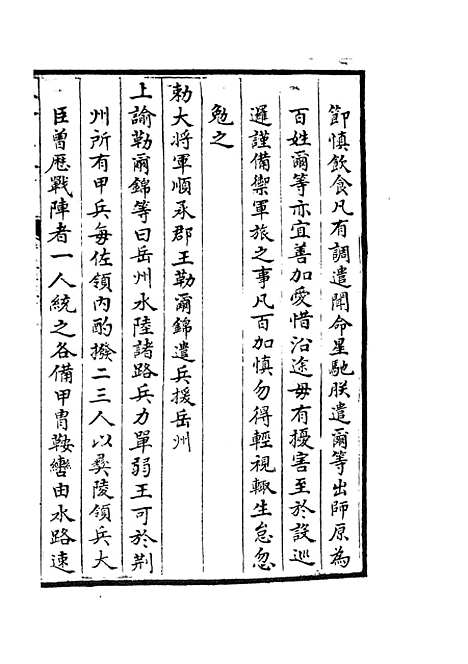 節慎飲食凡有調遣聞命星馳朕遣爾等出師原為
百姓爾等亦宜善加愛惜沿途毋有擾害至於設巡
邏謹備禦軍旅之事凡百加慎勿得輕視輒生怠忽
勉之
勅大將軍順承郡王勒爾錦遣兵援岳州
上諭勒爾錦等曰岳州水陸諸路兵力單弱王可於荆
州所有甲兵每佐領內酌撥二三人以彛陵領兵大
臣曾歷戰陣者一人統之各備甲冑鞍轡由水路速